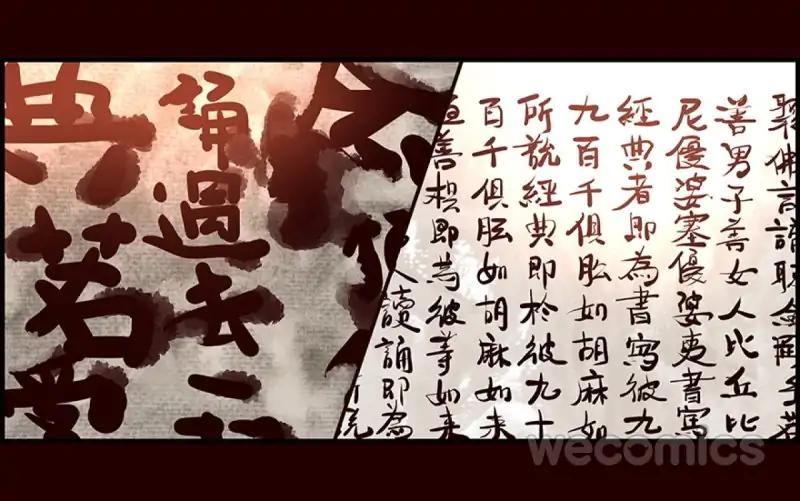 善男子善女人比丘比
尼優婆塞優婆夷書寫
經典者即為書寫彼九
九百千俱胝如胡麻如
所說經典即於彼九十
百千俱胝如胡麻如来
善根即為彼等如来
人讀誦即為
誦過去二
若
典
wecomics